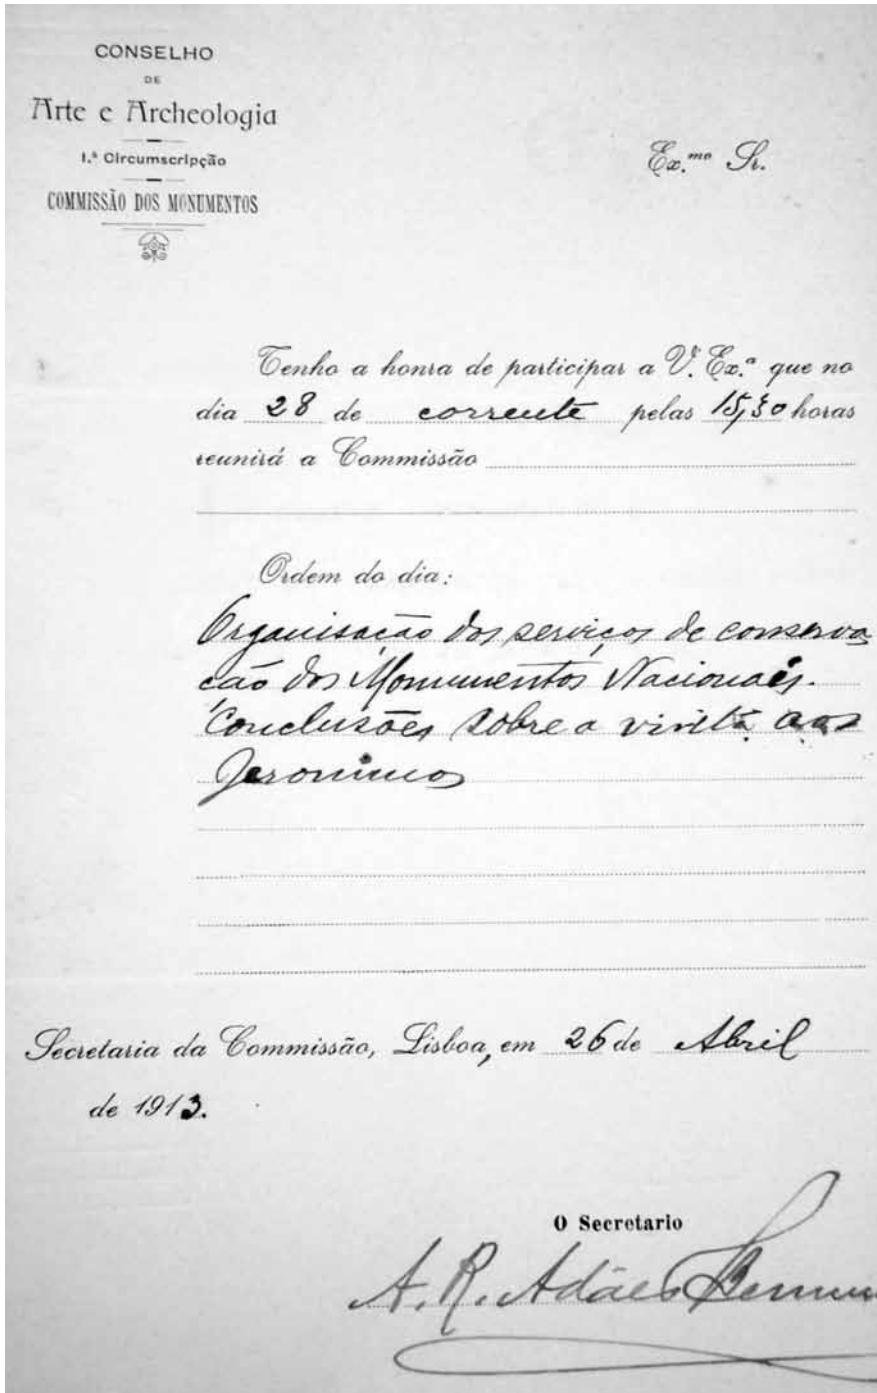 CONSELHO
DE
Arte e Archeologia
1.ª Circumscripção
COMMISSÃO DOS MONUMENTOS
Ex.mo Sr.
Tenho a honra de participar a V. Ex.ª que no
dia 28 de corrente pelas 15,30 horas
reunirá a Commissão
Ordem do dia:
Organisação dos serviços de conserva
ção dos Monumentos Nacionaes.
Conclusões sobre a visita aos
Jeronimos
Secretaria da Commissão, Lisboa, em 26 de Abril
de 1913.
O Secretario
A. R. Adães